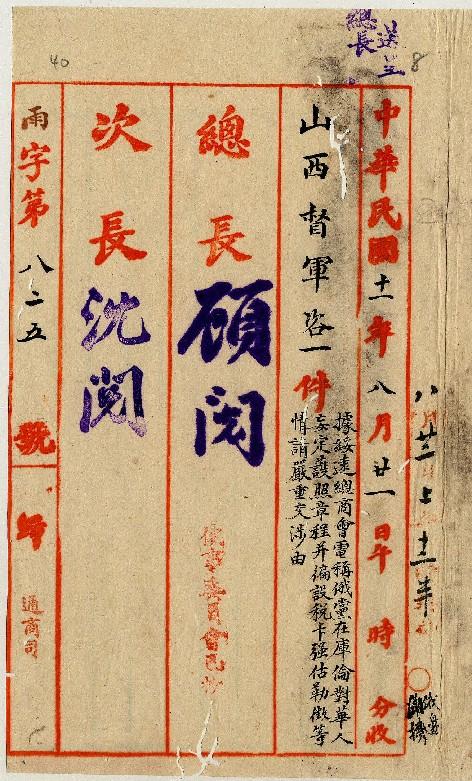 送呈
總長
8
40
中華民國十一年八月廿一日午時分收
山西督軍咨一件
據綏遠總商會電稱俄黨在庫倫對華人
妄定護照章程并徧設稅卡强估勒徵等
情請嚴重交涉由
總長顧閱
俄事委員會已抄
次長沈閱
雨字第八二五號歸通商司